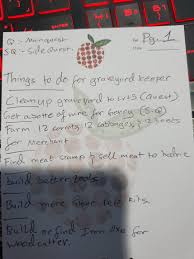 Q = Mainquest
SQ - Side Quest
Pg. 1
Things to do for graveyard keeper
Clean up graveyard to Lvl 5 (Quest)
Get a bottle of wine for (S-Q)
Farm 12 carrots, 12 cabbages, 12 beets
for Merchant
Find meat stamp & sell meat to
Build better tools
Build more
Build or find for
woodcutter.